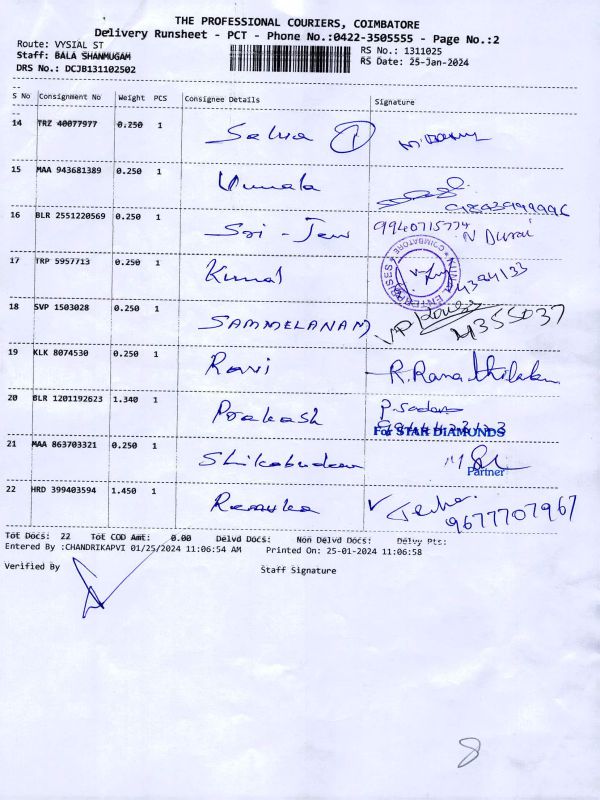 THE PROFESSIONAL COURIERS, COIMBATORE
Delivery Runsheet - PCT - Phone No.:0422-3505555 - Page No.:2
Route: VYSIAL ST
Staff: BALA SHANMUGAM
DRS No.: DCJB131102502
RS No.: 1311025
RS Date: 25-Jan-2024
S No Consignment No Weight PCS Consignee Details Signature
14 TRZ 40077977 0.250 1 Selva 1
15 MAA 943681389 0.250 1 Vimala
16 BLR 2551220569 0.250 1 Sri - Jew 9940715774
N Durai
17 TRP 5957713 0.250 1 Kunal KUNAL ENTERPRISES COIMBATORE 4394133
18 SVP 1503028 0.250 1 SAMMELANAM VP 4355037
19 KLK 8074530 0.250 1 Ravi R. Rama thilakam
20 BLR 1201192623 1.340 1 Prakash
For STAR DIAMONDS
21 MAA 863703321 0.250 1 Shikabudeen
Partner
22 HRD 399403594 1.450 1 Renuka
9677707967
Tot Docs: 22 Tot COD Amt: 0.00 Delvd Docs: Non Delvd Docs: Delvy Pts:
Entered By :CHANDRIKAPVI 01/25/2024 11:06:54 AM Printed On: 25-01-2024 11:06:58
Verified By Staff Signature
8